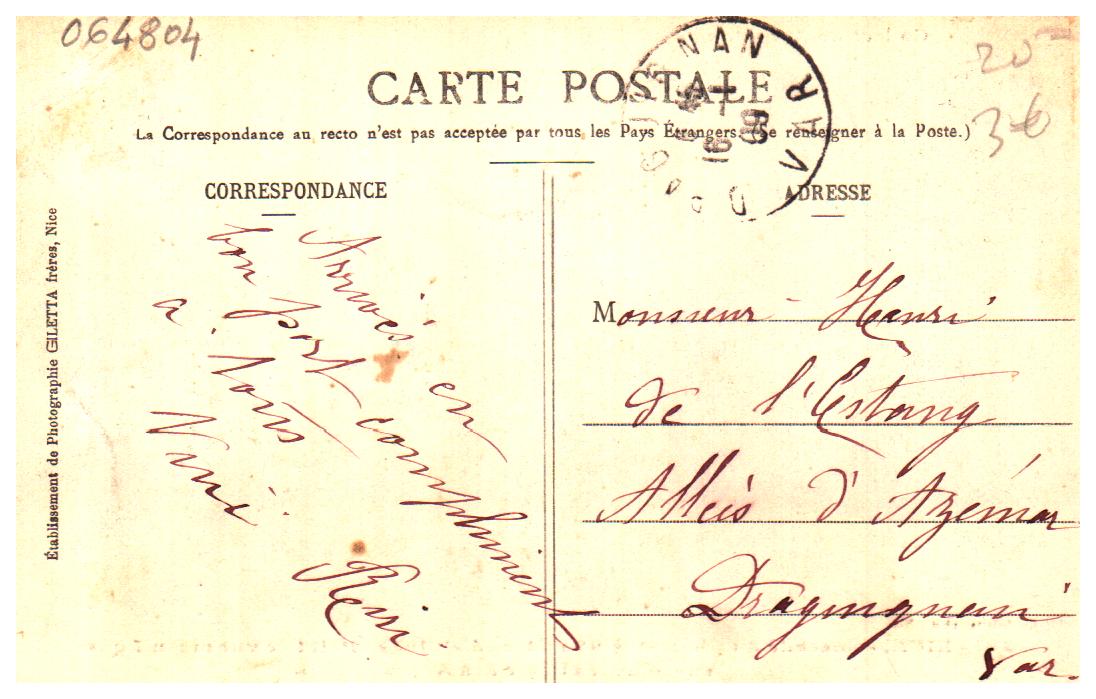 064804
20
36
CARTE POSTALE
La Correspondance au recto n'est pas acceptée par tous les Pays Étrangers. (Se renseigner à la Poste.)
DRAGUIGNAN
VAR
CORRESPONDANCE
Arrivés en
bon port compliment
a tous
René
ADRESSE
Monsieur Henri
de l'Estang
Allées d'Azémar
Draguignan
Var.
Établissement de Photographie GILETTA frères, Nice